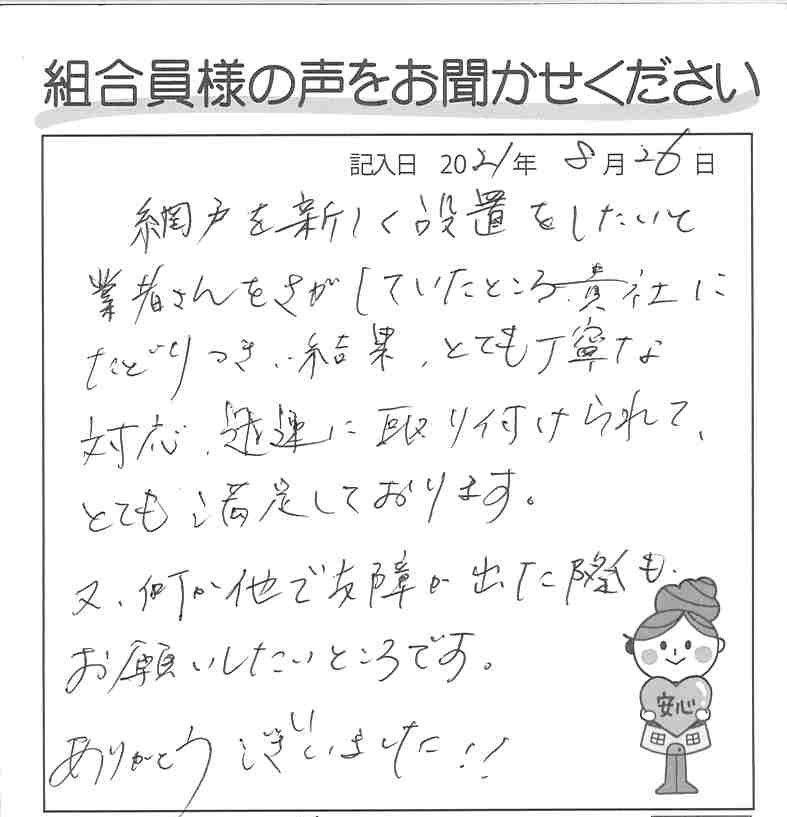 組合員様の声をお聞かせください
記入日 2021年 8月26日
網戸を新しく設置をしたいと
業者さんをさがしていたところ、貴社に
たどりつき、結果、とても丁寧な
対応、迅速に取り付けられて、
とても満足しております。
又、何か他で故障が出た際も
お願いしたいところです。
ありがとうございました!!
安心